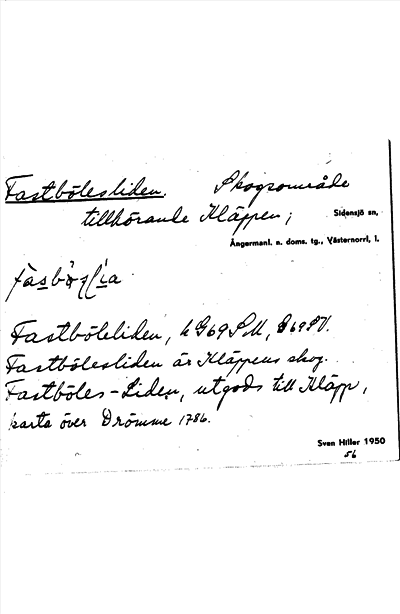 Fastbölesliden. Skogsområde
tillhörande Kläppen; Sidensjö sn,
Ångermanl. n. doms. tg., Västernorrl. l.
Fastböleliden, h G69SM, G69SV.
Fastbölesliden är Kläppens skog.
Fastböles-Liden, utgods till Kläpp,
karta över Drömme 1786.
Sven Hiller 1950
56